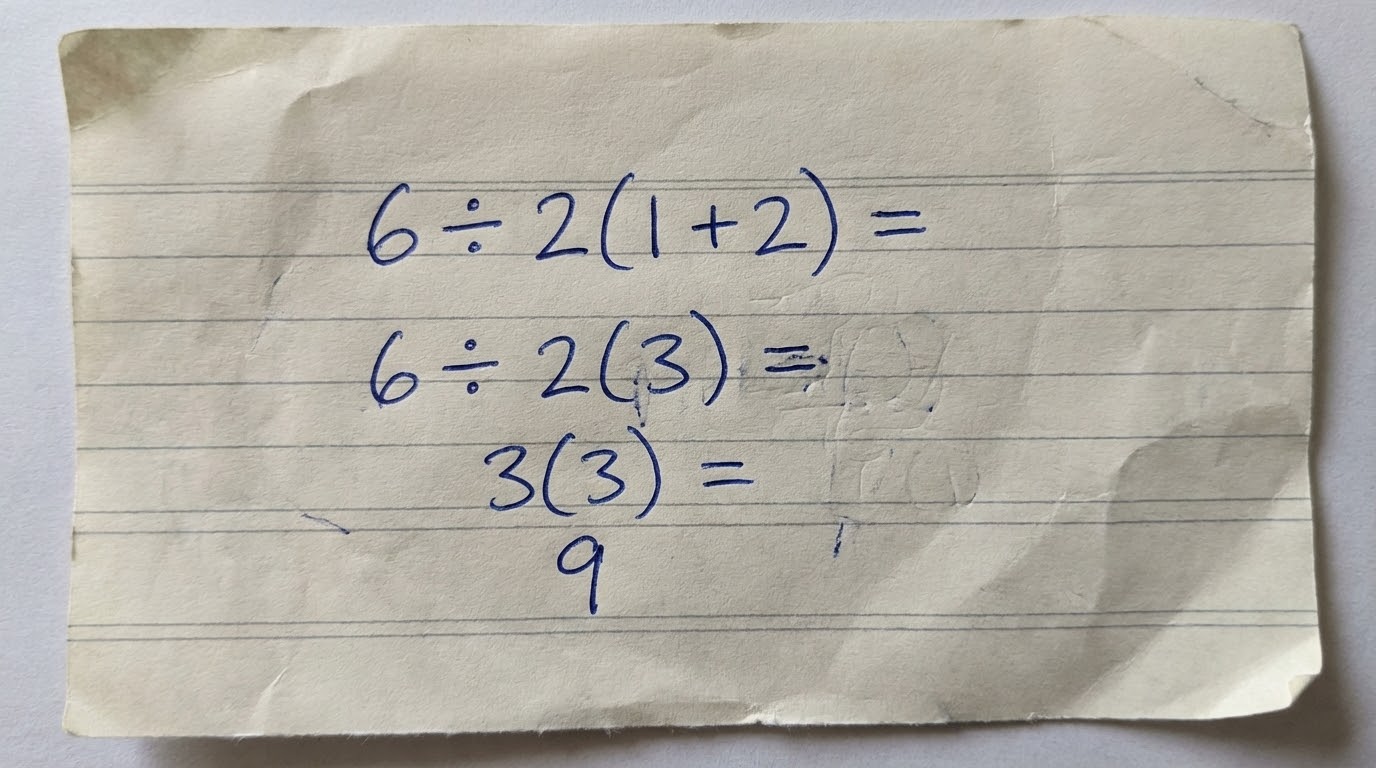 6 ÷ 2(1 + 2) =
6 ÷ 2(3) =
3(3) =
9